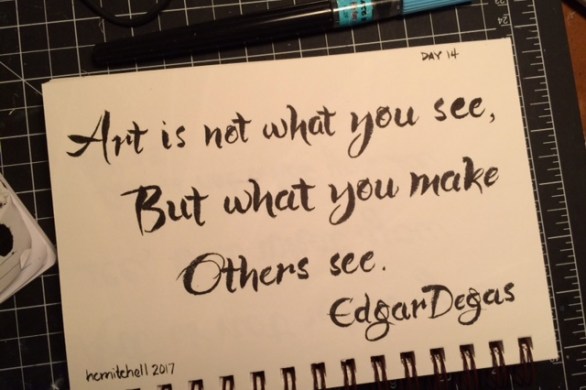 DAY 14
Art is not what you see,
But what you make
Others see.
Edgar Degas
hcmitchell 2017